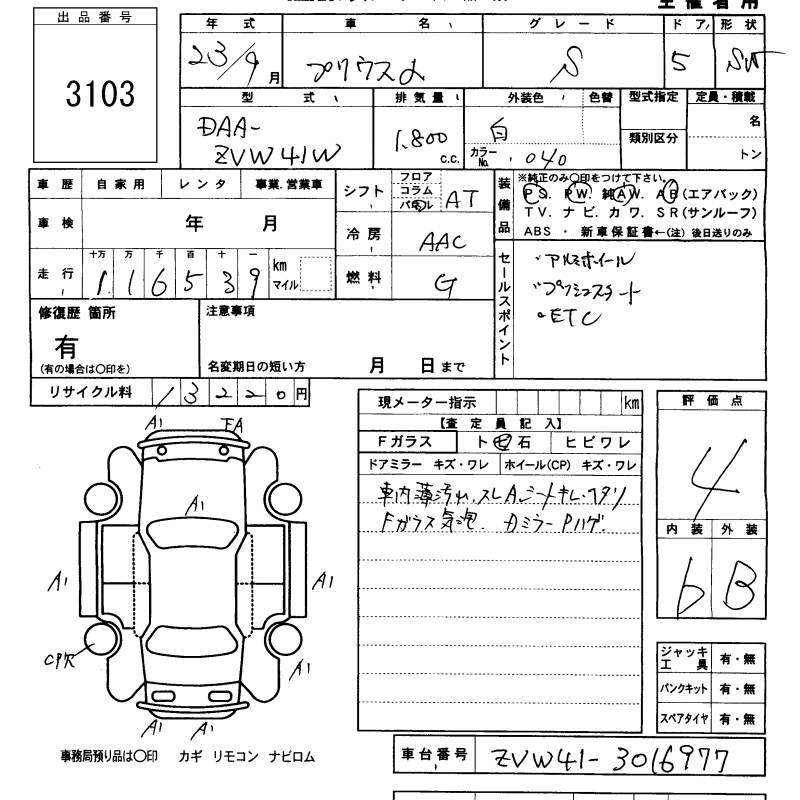 出品番号
3103
年式 車名 グレード ドア 形状
23/9月 プリウスα S 5 SW
型式 排気量 外装色 色替 型式指定 定員・積載
DAA-ZVW41W 1,800 c.c. 白 類別区分 名
カラーNo. 040 トン
車歴 自家用 レンタ 事業、営業車
車検 年 月
走行 十万 万 千 百 十 一
116539 km マイル
シフト フロア コラム パネル AT
冷房 AAC
燃料 G
装備品 ※純正のみ〇印をつけて下さい。
PS. PW. 純AW. AB(エアバック)
TV. ナビ. カワ. SR(サンルーフ)
ABS ・ 新車保証書←(注)後日送りのみ
セールスポイント
・アルミホイール
・プッシュスタート
・ETC
修復歴 箇所
有
(有の場合は〇印を)
注意事項
名変期日の短い方 月 日まで
リサイクル料 13220円
現メーター指示 km
【査定員記入】
Fガラス ト ビ 石 ヒビワレ
ドアミラー キズ・ワレ ホイール(CP) キズ・ワレ
車内薄汚れ、スレA、シートキレ・ヘタリ
Fガラス気泡. DミラーPハゲ.
評価点
4
内装 外装
b B
ジャッキ工具 有・無
パンクキット 有・無
スペアタイヤ 有・無
A1 下A
A1
A1 A1
CP欠 A1
A1 A1
事務局預り品は〇印 カギ リモコン ナビロム
車台番号 ZVW41-3016977